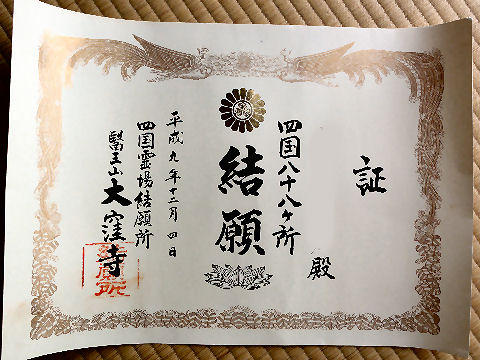 証
四国八十八ケ所
殿
結願
平成九年十二月四日
四国霊場結願所
醫王山大窪寺